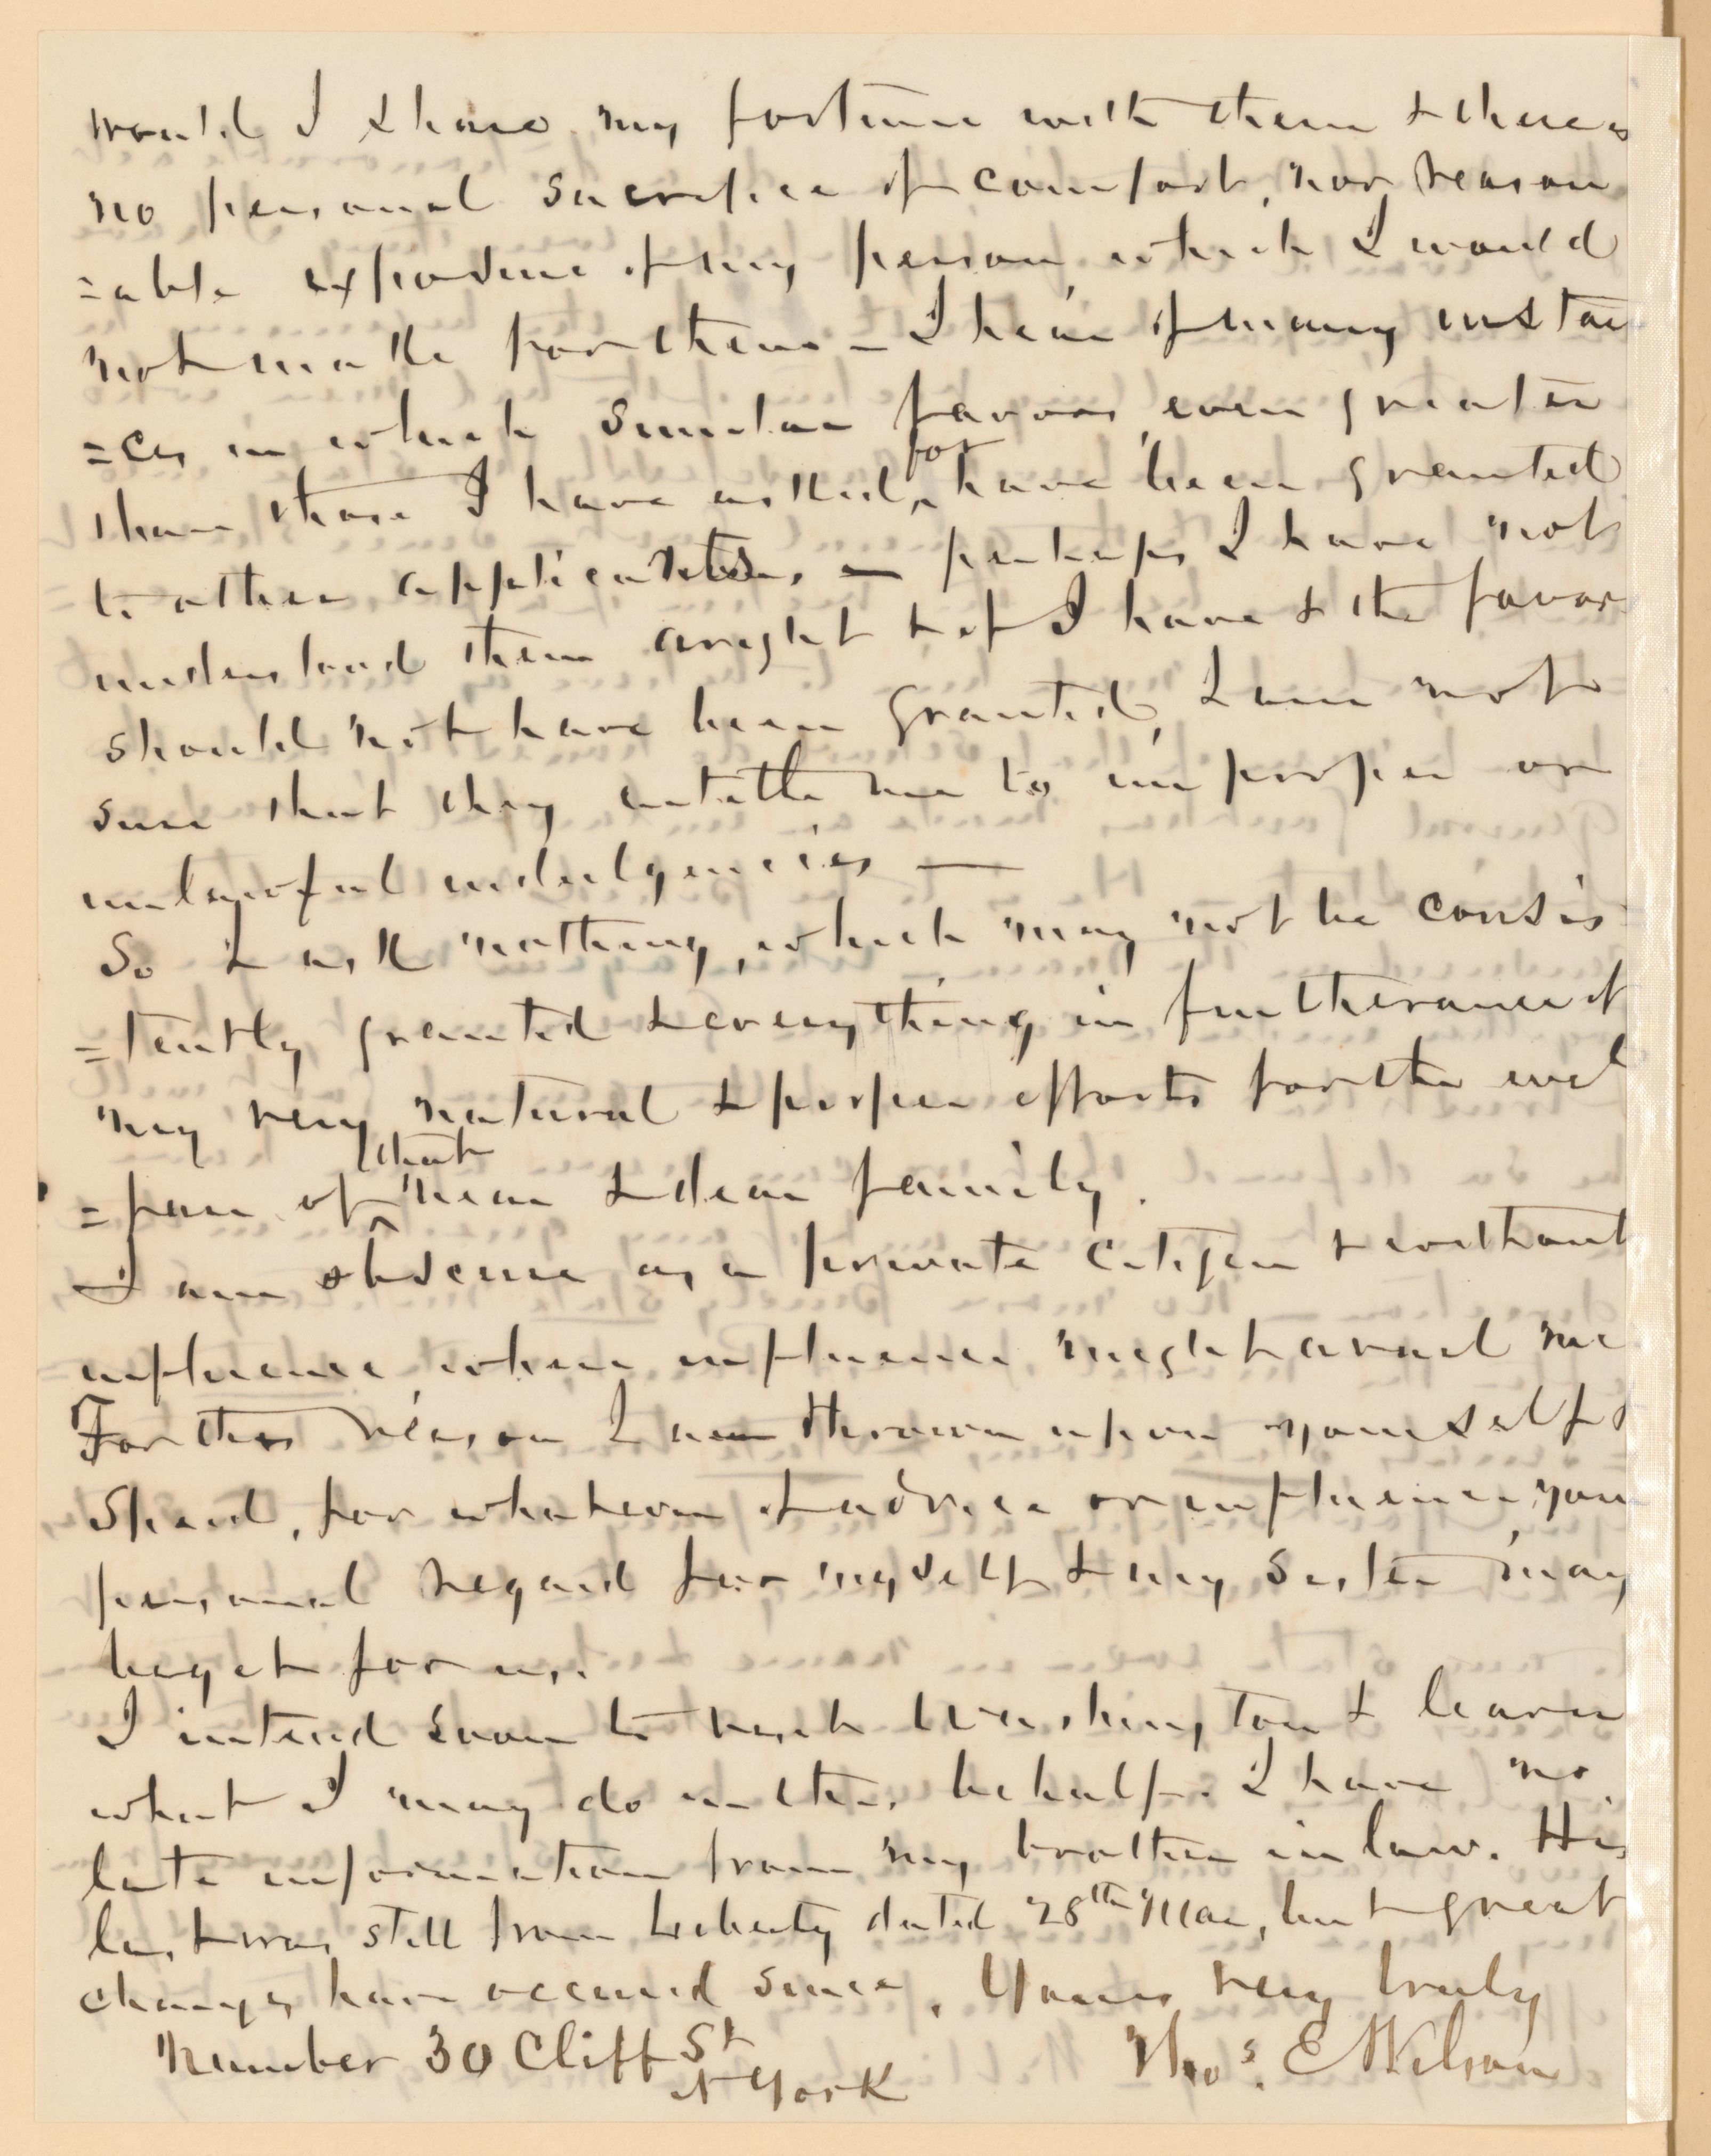 would I share my fortune with them & there is
no personal sacrifice of comfort, nor reason
=able exposure of my person, which I would
not make for them — I hear of many instan
=ces in which similar favors, even greater
than those I have asked for, have been granted
to other applicants, — perhaps I have not
understood them aright & if I have & the favor
should not have been granted, I am not
sure that they entitle me to improper or
unlawful indulgencies —
So I ask nothing, which may not be consis
=tently granted & everything in furtherance of
my very natural & proper efforts for the wel
=fare of that near & dear family.
I am obscure as a private citizen & without
influence, where influence might avail me
For this reason I am thrown upon yourself &
Speed, for whatever of advice or influence, your
personal regard for myself & my sister may
beget for us.
I intend soon to visit Washington & learn
what I may do in their behalf. I have no
late information from my brother in law. His
last was still from Liberty dated 28th Mar, but great
changes have occured since. Yours very truly
Number 30 Cliff St Thos. E Wilson
N York